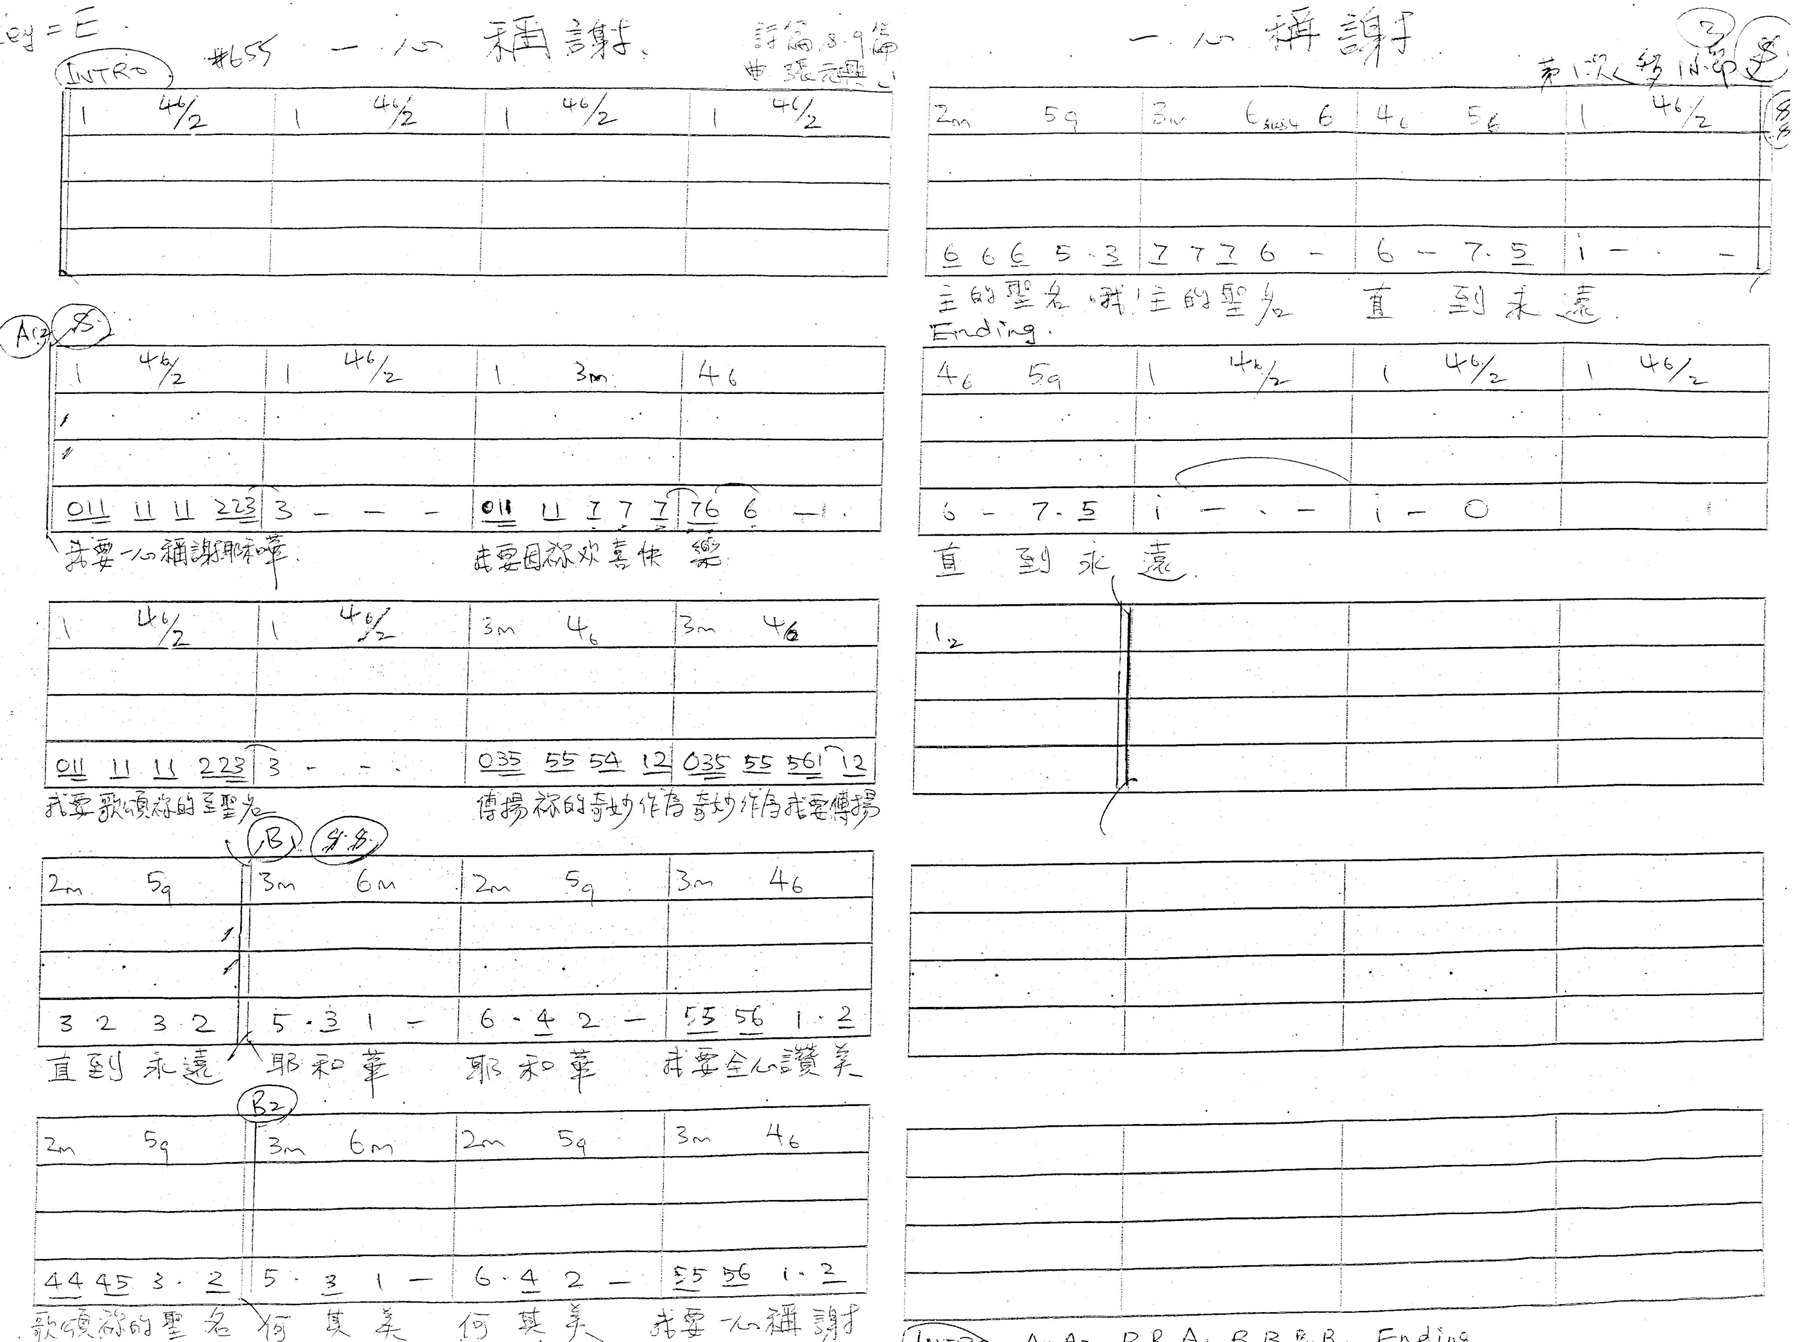 Key = E.
#655 一心稱謝 詩篇 8.9篇
曲 張元興
INTRO
1 46/2 1 46/2 1 46/2 1 46/2
A
1 46/2 1 46/2 1 3m 46
011 11 11 223 3 - - - 011 11 7 7 7 76 6 -
我要一心稱謝耶和華 我要因祢欢喜快樂
1 46/2 1 46/2 3m 46 3m 46
011 11 11 223 3 - - . 035 55 54 12 035 55 561 12
我要歌頌祢的至聖名 傳揚祢的奇妙作為奇妙作為我要傳揚
B S.S.
2m 59 3m 6m 2m 59 3m 46
3 2 3 2 5 . 3 1 - 6 . 4 2 - 55 56 1 . 2
直到永遠 耶和華 耶和華 我要全心讚美
B2
2m 59 3m 6m 2m 59 3m 46
44 45 3 . 2 5 . 3 1 - 6 . 4 2 - 55 56 1 . 2
歌頌祢的聖名 何其美 何其美 我要一心稱謝
一心稱謝 3
第1次
2m 59 3m 6sus4 6 46 56 1 46/2
6 6 6 5 . 3 7 7 7 6 - 6 - 7 . 5 i - . -
主的聖名 哦！主的聖名 直到永遠
Ending.
46 59 1 46/2 1 46/2 1 46/2
6 - 7 . 5 i - . - i - 0
直到永遠.
12
Ending